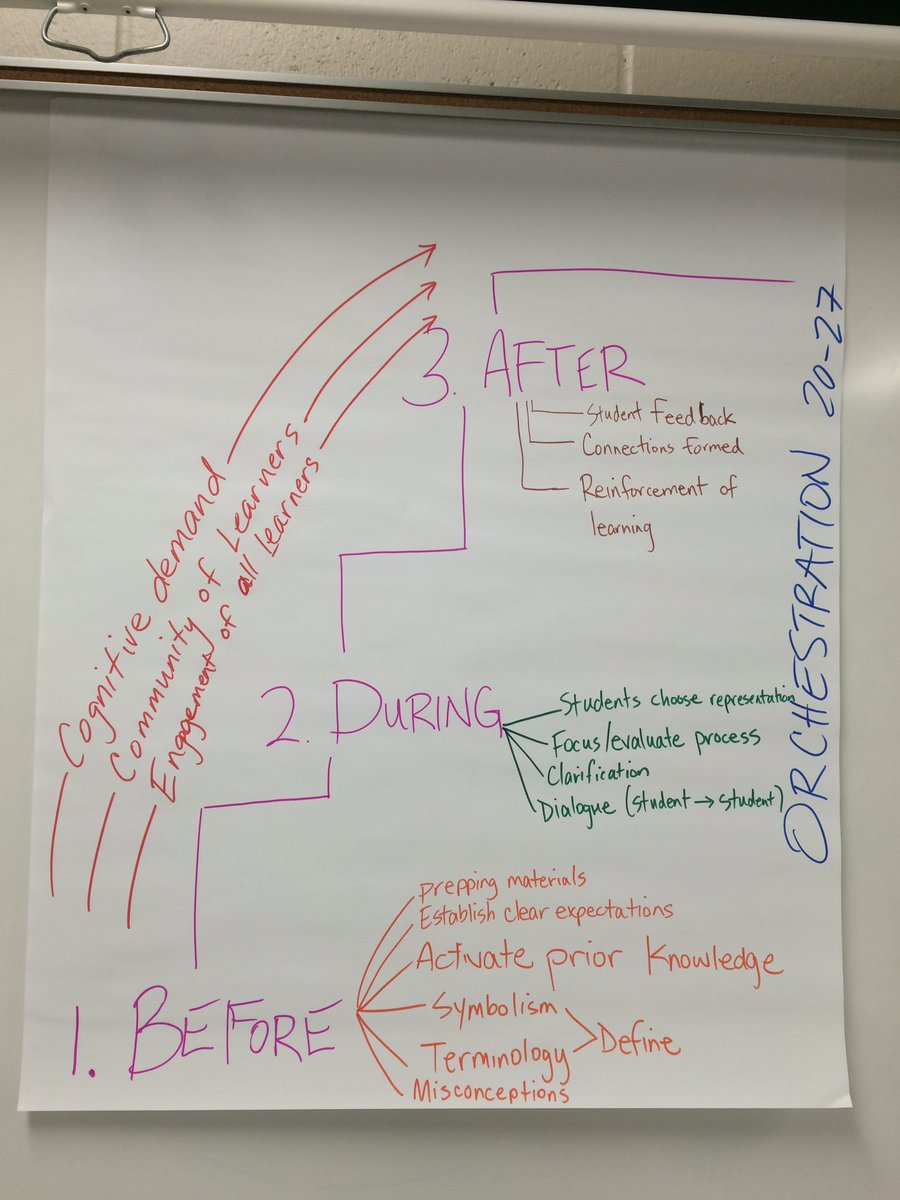 ORCHESTRATION 20-27
Cognitive demand
Community of Learners
Engagement of all Learners
3. AFTER
Student Feedback
Connections formed
Reinforcement of
learning
2. DURING
Students choose representation
Focus/evaluate process
Clarification
Dialogue (student → student)
1. BEFORE
prepping materials
Establish clear expectations
Activate prior knowledge
Symbolism
Terminology
Define
Misconceptions